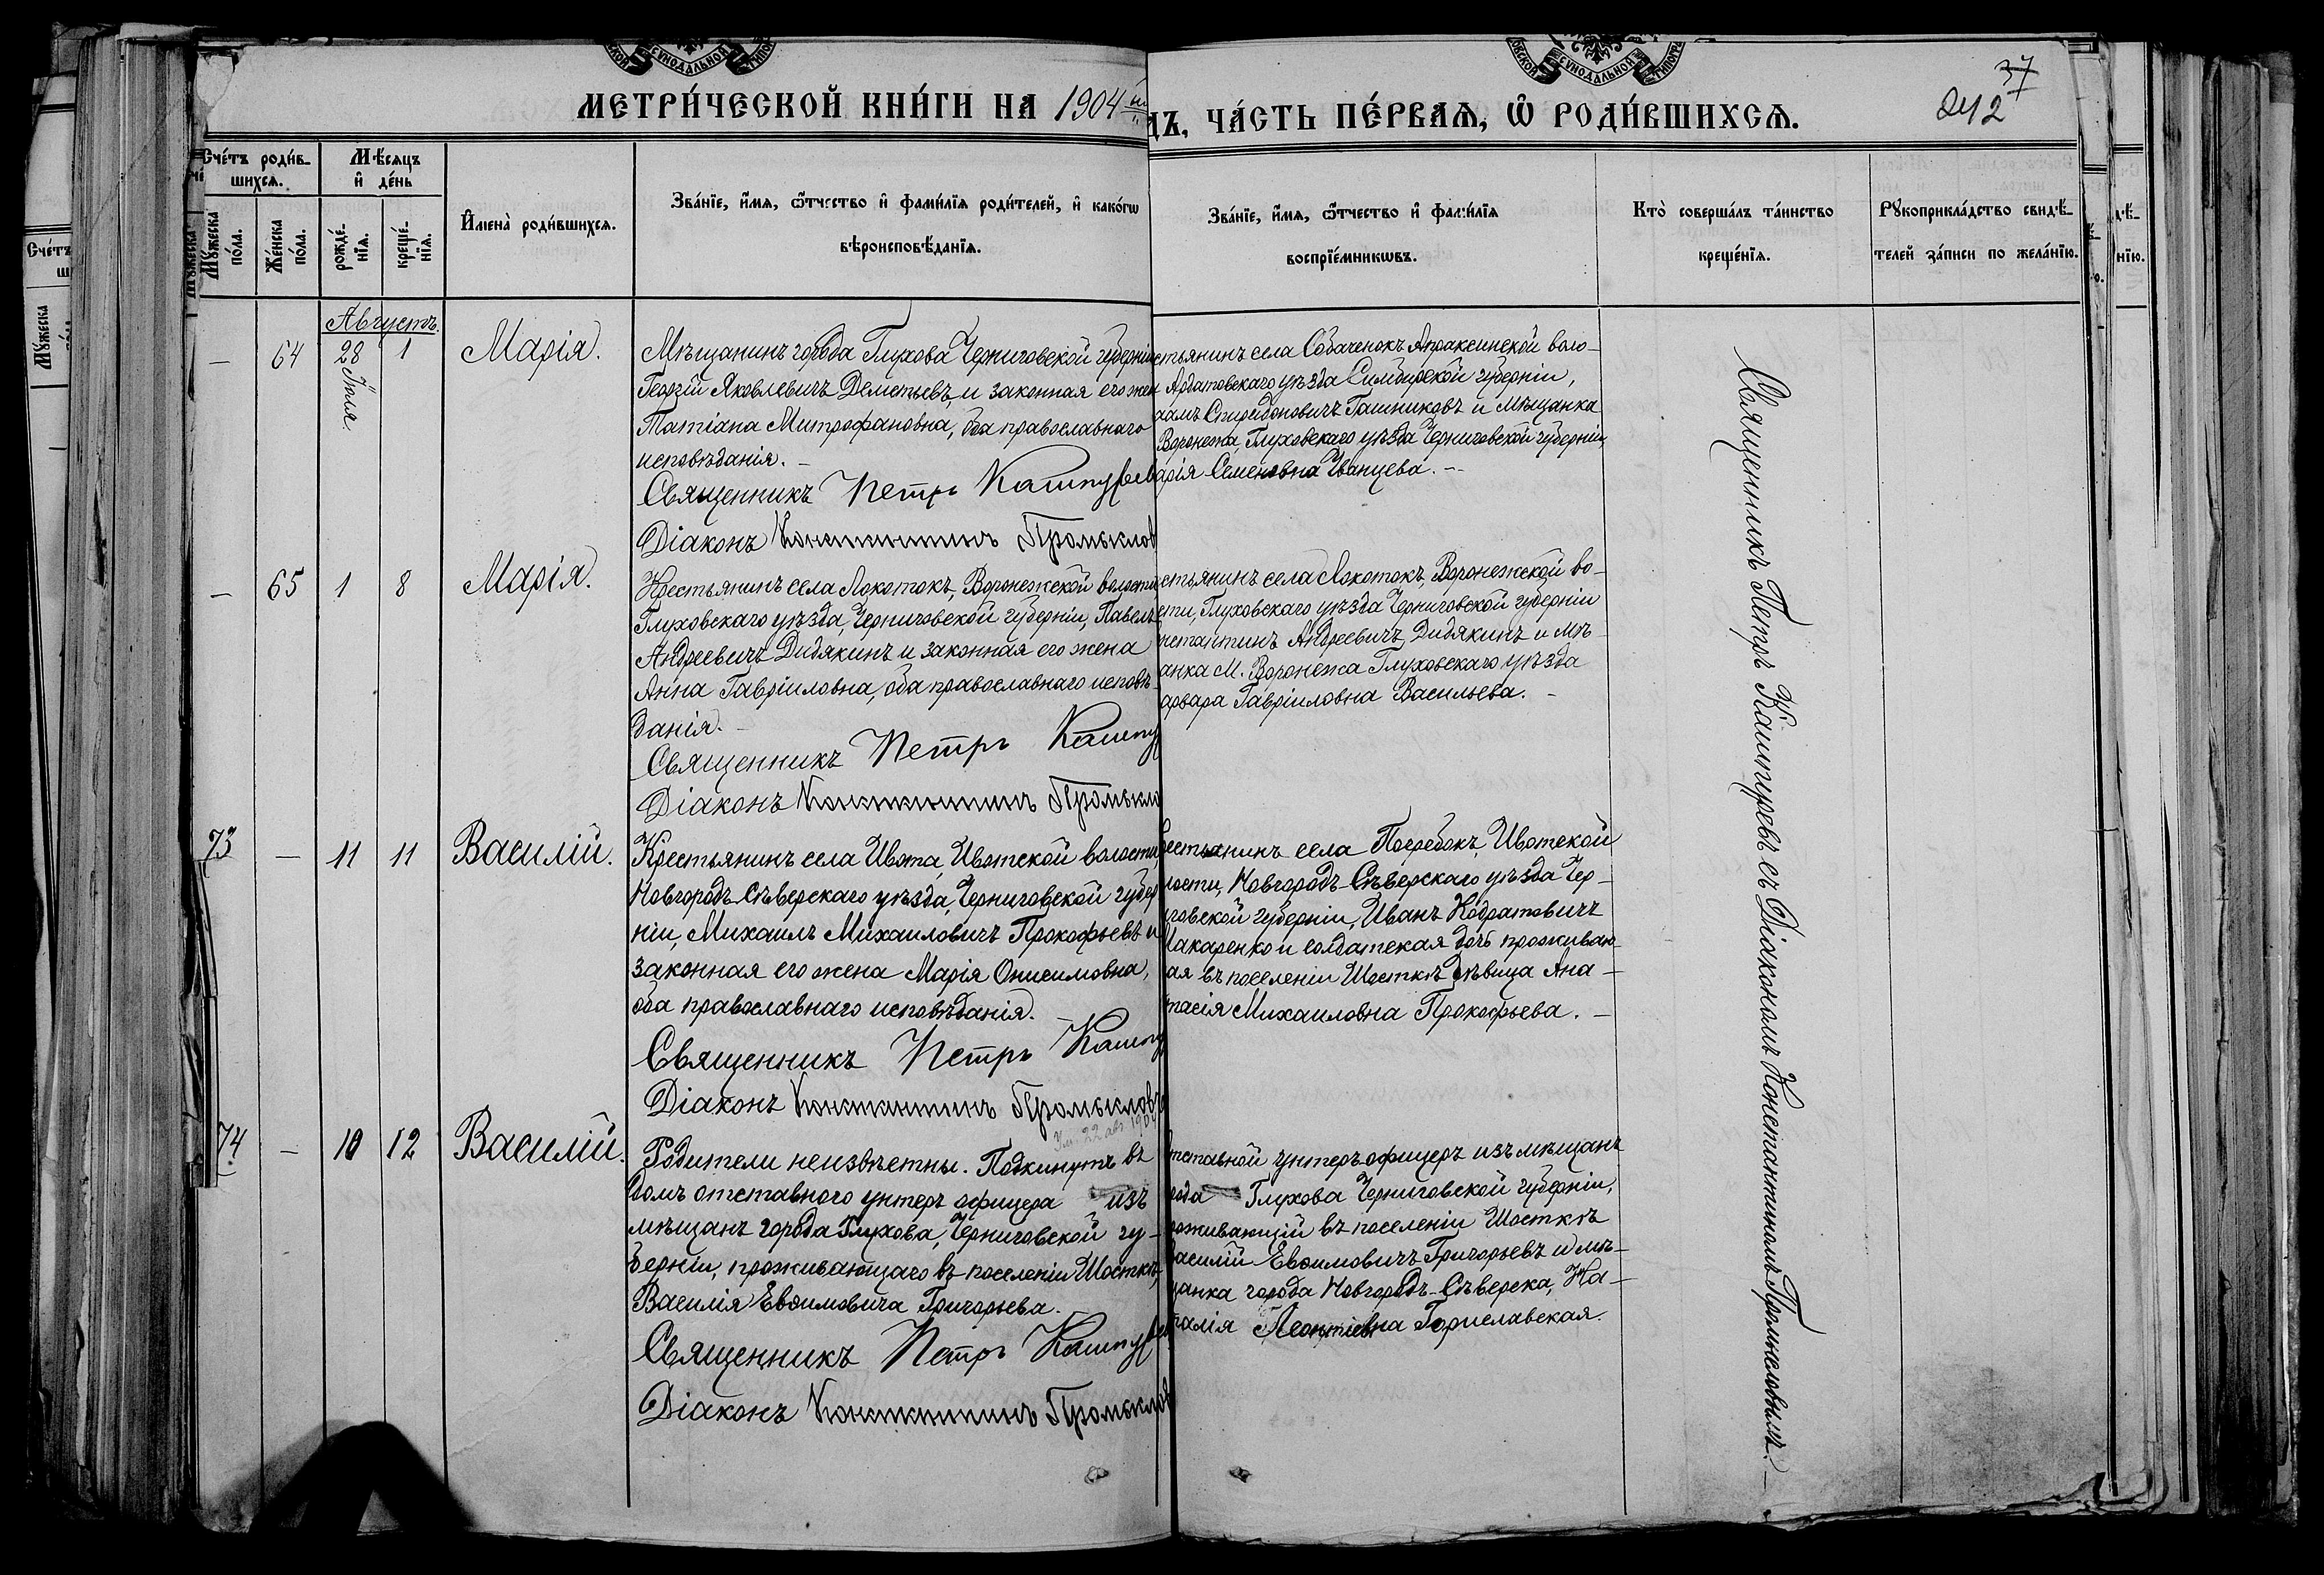 МЕТРИ́ЧЕСКОЙ КНИ́ГИ НА 1904 й
ДЪ, ЧА́СТЬ ПЕ́РВАЯ, Ѡ РОДИ́ВШИХСЯ.
37
242
Сче́тъ роди́в-
шихся.
Мѣ́сяцъ
и҆ де́нь
Му́жеска
по́ла.
Же́нска
по́ла.
рожде́-
нїя.
креще́-
нїя.
И҆мена̀ роди́вшихся.
Зва́нїе, и҆́мя, ѻ҆́тчество и҆ фами́лїя роди́телей, и҆ како́гѡ
вѣроисповѣ́данїя.
Зва́нїе, и҆́мя, ѻ҆́тчество и҆ фами́лїя
воспрїе́мникѡвъ.
Кто̀ соверша́лъ та́инство
креще́нїя.
Рꙋкоприкла́дство свидѣ́-
телей за́писи по жела́нїю.
Августъ.
— 64 28 Іюля 1 Марія.
Мѣщанинъ города Глухова Черниговской губерніи
Георгій Яковлевичъ Дементьевъ, и законная его жен
Татіана Митрофановна, оба православнаго
исповѣданія. —
Священникъ Петръ Кашпурев
Діаконъ Константинъ Промыслов
стьянинъ села Собаченокъ Апраксинской воло-
Ардатовскаго уѣзда Симбирской губерніи,
аамъ Спиридоновичъ Гашниковъ и мѣщанка
Воронежа, Глуховскаго уѣзда Черниговской губерніи,
арія Семеновна Иванцева. —
— 65 1 8 Марія.
Крестьянинъ села Локотокъ, Воронежской волости
Глуховскаго уѣзда, Черниговской губерніи, Павелъ
Андреевичъ Дидякинъ и законная его жена
Анна Гавріиловна, оба православнаго исповѣ-
данія. —
Священникъ Петръ Кашпу
Діаконъ Константинъ Промысло
естьянинъ села Локотокъ, Воронежской во-
сти, Глуховскаго уѣзда Черниговской губерніи
нстантинъ Андреевичъ Дидякинъ и мѣ-
анка М. Воронежа Глуховскаго уѣзда
арвара Гавріиловна Васильева. —
73 — 11 11 Василій.
Крестьянинъ села Ивота, Ивотской волости,
Новгородъ-Сѣверскаго уѣзда, Черниговской губер
ніи, Михаилъ Михаиловичъ Прокофьевъ и
законная его жена Марія Онисимовна,
оба православнаго исповѣданія. —
Священникъ Петръ Кашпу
Діаконъ Константинъ Промысловъ
рестьянинъ села Погребокъ, Ивотской
лости, Новгородъ-Сѣверскаго уѣзда Чер-
иговской губерніи, Иванъ Кодратовичъ
Макаренко и солдатская дочь проживаю-
ая въ поселеніи Шосткѣ дѣвица Ана-
тасія Михаиловна Прокофьева. —
74 — 10 12 Василій.
Ум. 22 авг. 1904
Родители неизвѣстны. Подкинутъ въ
домъ отставного унтеръ офицера изъ
мѣщанъ города Глухова, Черниговской гу-
берніи, проживающаго въ поселеніи Шосткѣ,
Василія Евѳимовича Григорьева.
Священникъ Петръ Кашпурев
Діаконъ Константинъ Промыслов
тставной унтеръ офицеръ изъ мѣщанъ
рода Глухова Черниговской губерніи,
роживающій въ поселеніи Шосткѣ
Василій Евѳимовичъ Григорьевъ и мѣ-
щанка города Новгородъ-Сѣверска, На-
талія Леонтіевна Гориславская.
Священникъ Петръ Кашпуревъ съ Діакономъ Константиномъ Промысловымъ. —